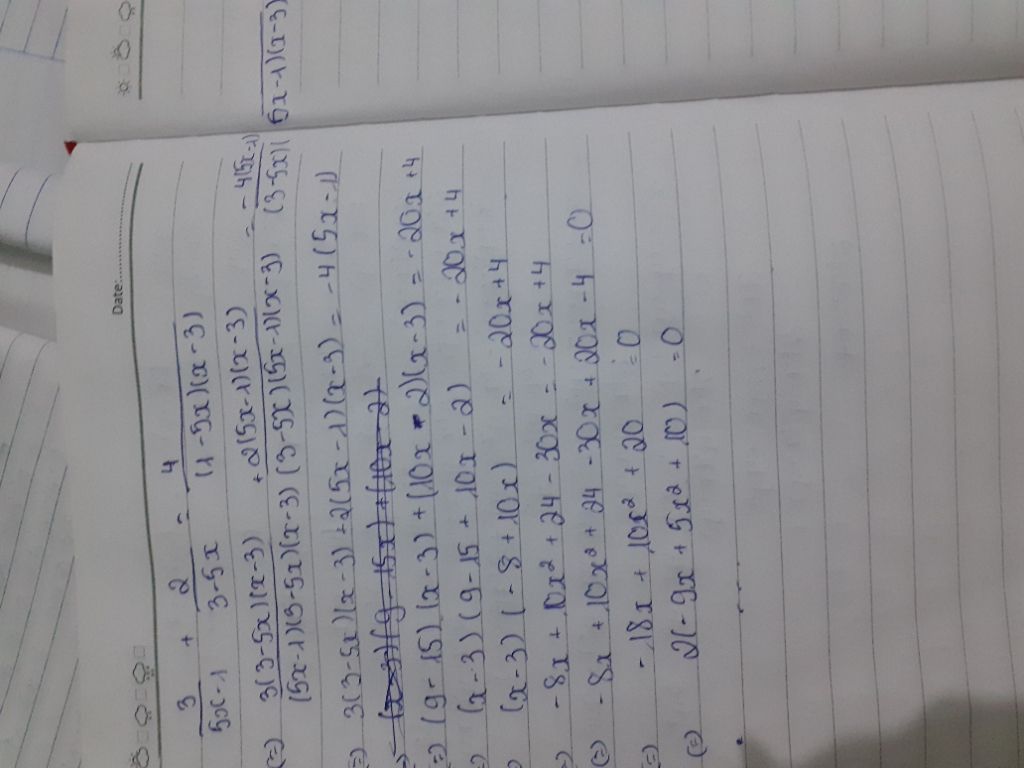 Date:
3/(5x-1) + 2/(3-5x) = 4/((1-5x)(x-3))
(=) 3(3-5x)(x-3)/((5x-1)(3-5x)(x-3)) + 2(5x-1)(x-3)/((3-5x)(5x-1)(x-3)) = -4(5x-1)/((3-5x)(5x-1)(x-3))
(=) 3(3-5x)(x-3) + 2(5x-1)(x-3) = -4(5x-1)
(=) (9-15)(x-3) + (10x-2)(x-3) = -20x+4
(x-3)(9-15+10x-2) = -20x+4
(x-3)(-8+10x) = -20x+4
-8x+10x²+24-30x = -20x+4
(=) -8x+10x²+24-30x+20x-4=0
(=) -18x+10x²+20=0
(=) 2(-9x+5x²+10)=0